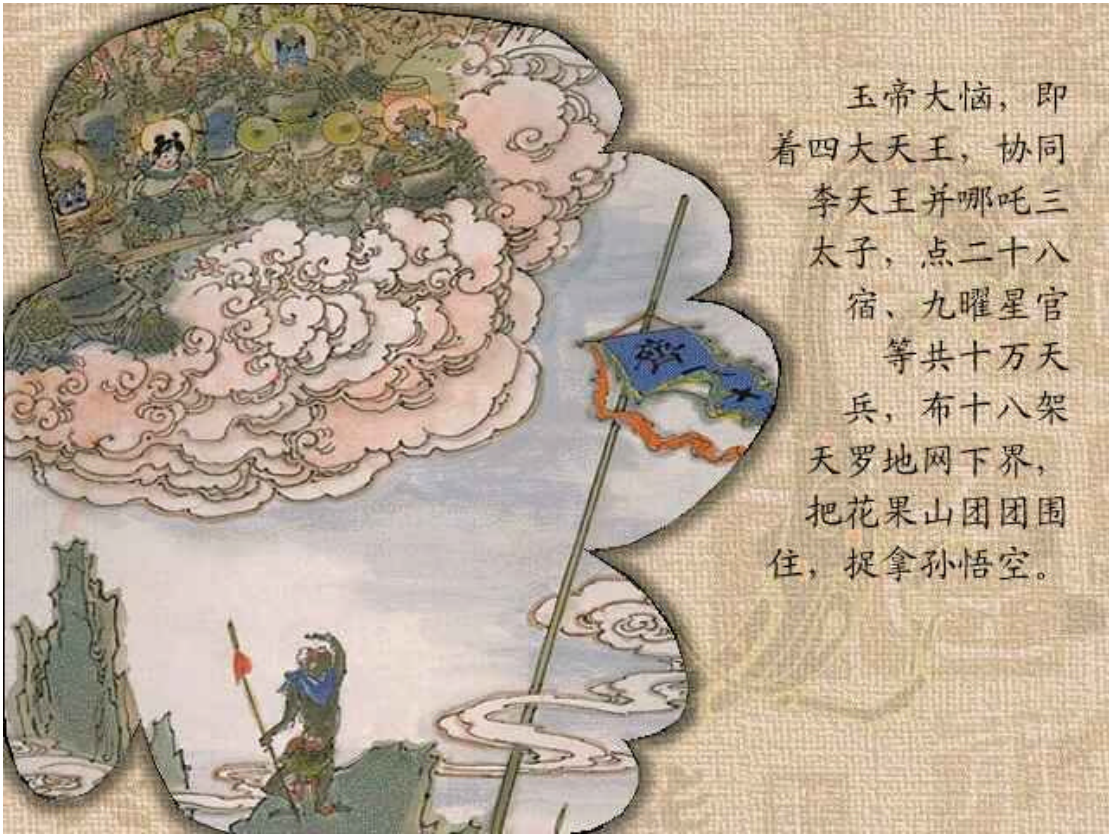 玉帝大恼，即
着四大天王，协同
李天王并哪吒三
太子，点二十八
宿、九曜星官
等共十万天
兵，布十八架
天罗地网下界，
把花果山团团围
住，捉拿孙悟空。